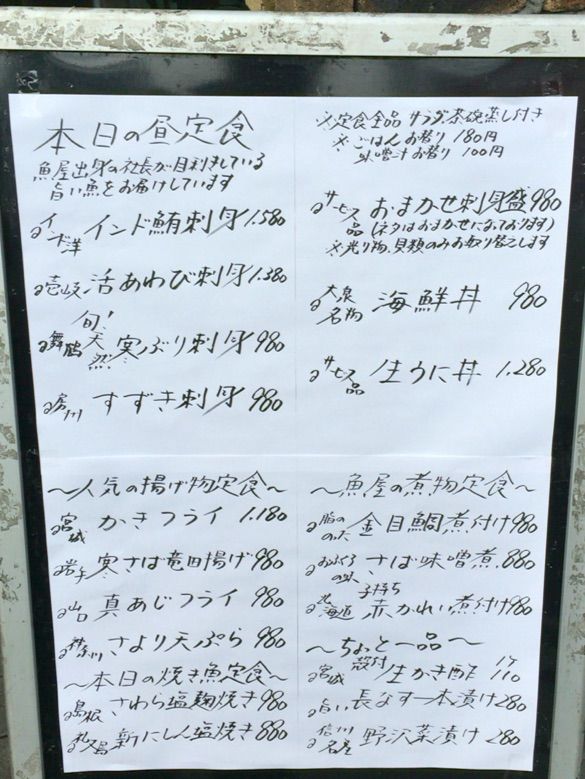 本日の昼定食
魚屋出身の社長が目利きしている
旨い魚をお届けしています
インド洋 インド鮪刺身 1.580
壱岐 活あわび刺身 1.380
旬!
舞鶴 天然 寒ぶり刺身 980
房州 すずき刺身 980
※定食全品 サラダ茶碗蒸し付き
※ごはんお替り 180円
味噌汁お替り 100円
サービス品 おまかせ刺身盛 980
(ネタはおまかせになっております)
※光り物、貝類のみお取り替えします
大泉名物 海鮮丼 980
サービス品 生うに丼 1.280
〜人気の揚げ物定食〜
宮城 かきフライ 1.180
岩手 寒さば竜田揚げ 980
山口 真あじフライ 980
神奈川 さより天ぷら 980
〜本日の焼き魚定食〜
島根 さわら塩麹焼き 980
礼文島 新にしん塩焼き 880
〜魚屋の煮物定食〜
脂ののった 金目鯛煮付け 980
おふくろの味 さば味噌煮 880
北海道 子持ち 赤かれい煮付け 980
〜ちょっと一品〜
宮城 殻付 生かき酢 1ケ 110
旨い 長なす一本漬け 280
信州名産 野沢菜漬け 280